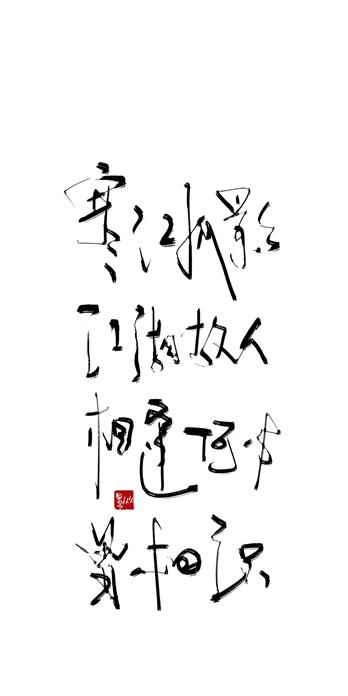 寒江孤影
江湖故人
相逢何必
曾相识